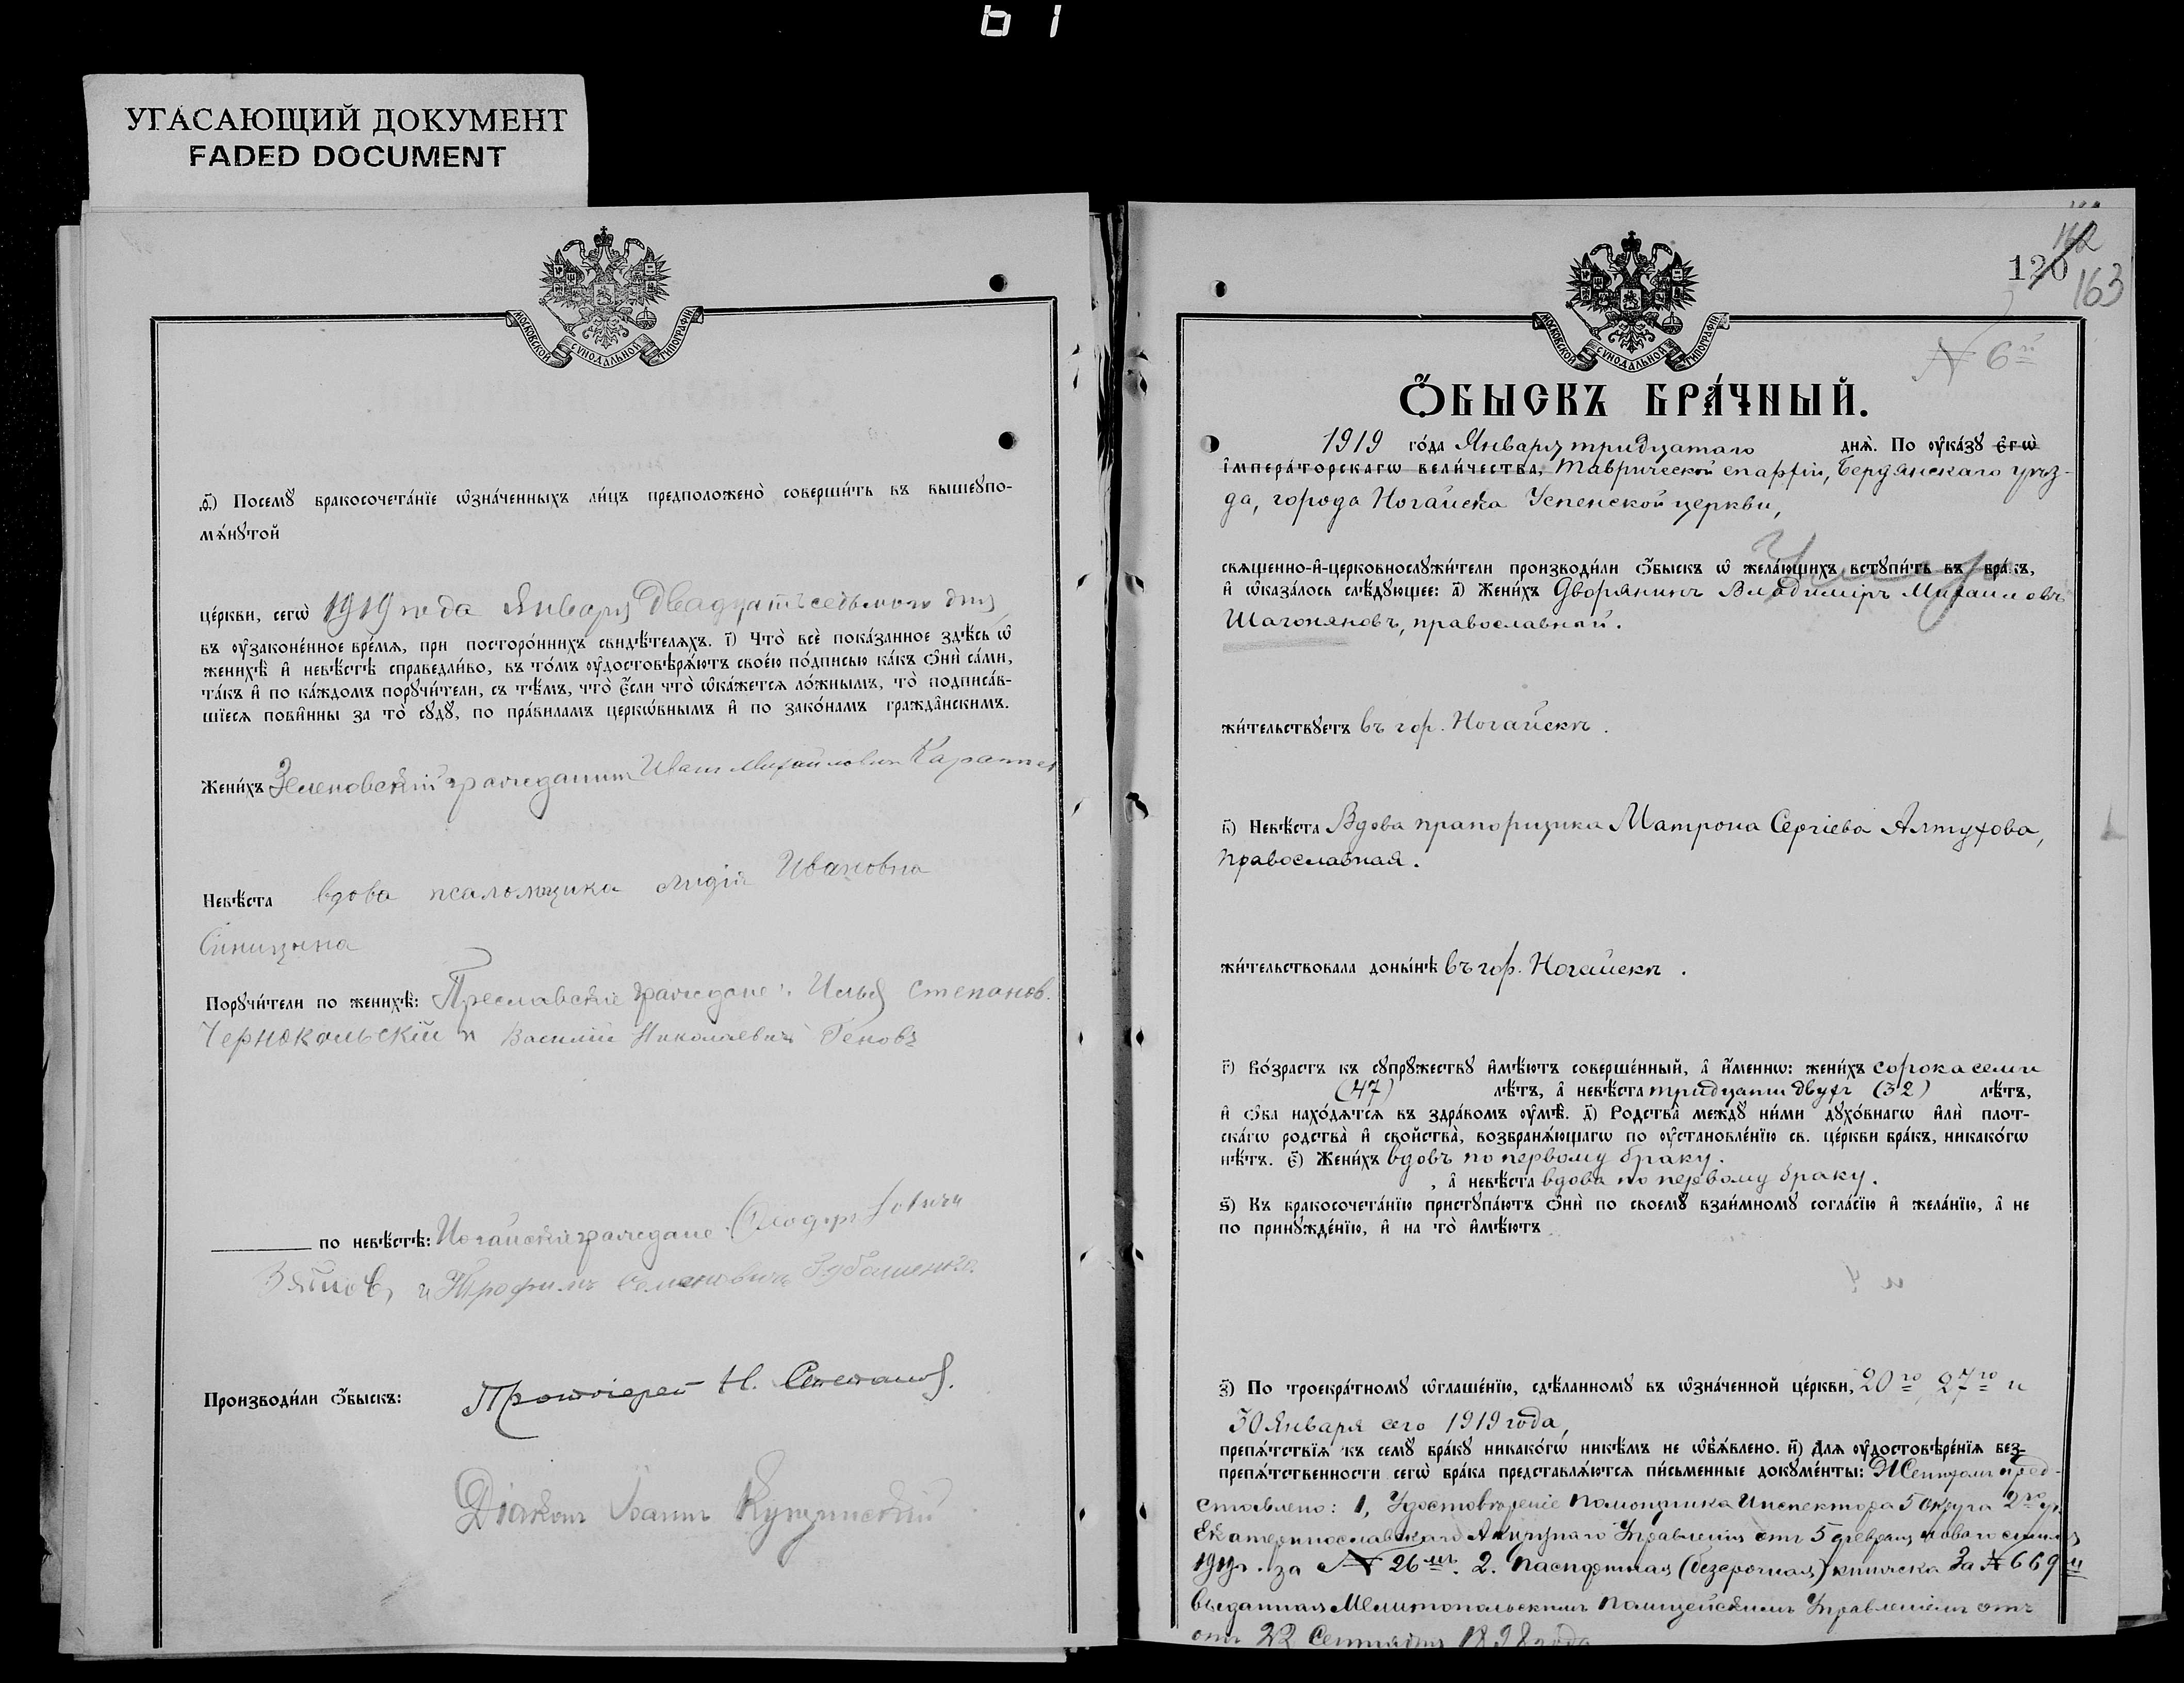 УГАСАЮЩИЙ ДОКУМЕНТ
FADED DOCUMENT
МОСКОВСКОЙ СѴНОДАЛЬНОЙ ТИПОГРАФІИ
ѳ҃) Посемꙋ̀ бракосочета́нїе ѡ҆зна́ченныхъ ли́цъ предположено̀ соверши́ть въ вышеꙋпо-
мѧ́нꙋтой
це́ркви, сегѡ̀ 1919 года Января двадцать седьмого дня,
въ ᲂу҆зако́ненное вре́мѧ, при посторо́ннихъ свидѣ́телѧхъ. і҃) Что̀ всѐ пока́занное здѣ́сь ѡ҆
женихѣ̀ и҆ невѣ́стѣ справедли́во, въ то́мъ ᲂу҆достовѣрѧ́ютъ свое́ю по́дписью ка́къ ѻ҆нѝ са́ми,
та́къ и҆ по ка́ждомъ порꙋчи́тели, съ тѣ́мъ, что̀ є҆́сли что̀ ѡ҆ка́жетсѧ ло́жнымъ, то̀ подписа́в-
шїесѧ пови́нны за то̀ сꙋдꙋ̀, по пра́виламъ церко́внымъ и҆ по зако́намъ гражда́нскимъ.
Жени́хъ Зеленовскій гражданинъ Иванъ Михайловичъ
Невѣ́ста вдова псаломщика Лидія Ивановна
Синицына
Порꙋчи́тели по женихѣ̀: Преславскіе граждане: Илья Степанов.
Чернокольскій и Василій Николаевичъ Геновъ
по невѣ́стѣ: Ногайскіе граждане
и Трофимъ Семеновичъ
Производи́ли ѻ҆́быскъ: Протоіерей Н. Степановъ.
Діаконъ Іоаннъ
МОСКОВСКОЙ СѴНОДАЛЬНОЙ ТИПОГРАФІИ
162
120
163
№ 6й
Ѻ҆́БЫСКЪ БРА́ЧНЫЙ.
1919 го́да Января тридцатаго днѧ̀. По ᲂу҆ка́зꙋ є҆гѡ̀
и҆мпера́торскагѡ вели́чества, Таврической епархіи, Бердянскаго уѣз-
да, города Ногайска Успенской церкви,
свѧще́нно-и҆-церковнослꙋжи́тели производи́ли ѻ҆́быскъ ѡ҆ жела́ющихъ вступи́ть въ бра́къ,
и҆ ѡ҆каза́лось слѣ́дꙋющее: а҃) Жени́хъ Дворянинъ Владиміръ Михаиловъ
Шагоняновъ, православный.
жи́тельствꙋетъ въ гор. Ногайскѣ.
в҃) Невѣ́ста Вдова прапорщика Матрона Сергіева Алтухова,
православная.
жи́тельствовала доны́нѣ въ гор. Ногайскѣ.
г҃) Во́зрастъ къ сꙋпрꙋ́жествꙋ и҆мѣ́ютъ соверше́нный, а҆ и҆́менно: жени́хъ сорока семи
(47) лѣ́тъ, а҆ невѣ́ста тридцати двухъ (32) лѣ́тъ,
и҆ ѻ҆́ба нахо́дѧтсѧ въ здра́вомъ ᲂу҆мѣ̀. д҃) Родства̀ междꙋ̀ ни́ми дꙋхо́внагѡ и҆лѝ плот-
ска́гѡ родства̀ и҆ свойства̀, возбранѧ́ющагѡ по ᲂу҆становле́нїю св. це́ркви бра́къ, никако́гѡ
нѣ́тъ. є҃) Жени́хъ вдовъ по первому браку.
, а҆ невѣ́ста вдова по первому браку.
ѕ҃) Къ бракосочета́нїю пристꙋпа́ютъ ѻ҆нѝ по своемꙋ̀ взаи́мномꙋ согла́сїю и҆ жела́нїю, а҆ не
по принꙋжде́нїю, и҆ на то̀ и҆мѣ́ютъ
з҃) По троекра́тномꙋ ѡ҆глаше́нїю, сдѣ́ланномꙋ въ ѡ҆зна́ченной це́ркви, 20го, 27го и
30 Января сего 1919 года,
препѧ́тствїѧ къ семꙋ̀ бра́кꙋ никако́гѡ нике́мъ не ѡ҆б̾ѧ́влено. и҃) Длѧ ᲂу҆достовѣре́нїѧ без-
препѧ́тственности сегѡ̀ бра́ка представлѧ́ютсѧ пи́сьменные докꙋме́нты: Женихомъ пред-
ставлено: 1, Удостовѣреніе Помощника Инспектора 5 округа 2го уч.
Екатеринославскаго Акцизнаго Управленія отъ 5 февраля новаго стиля
1919г. за № 26мъ. 2. Паспортная (безсрочная) книжка за № 669м
выданная Мелитопольскимъ Полицейскимъ Управленіемъ отъ
отъ 22 Сентября 1898 года